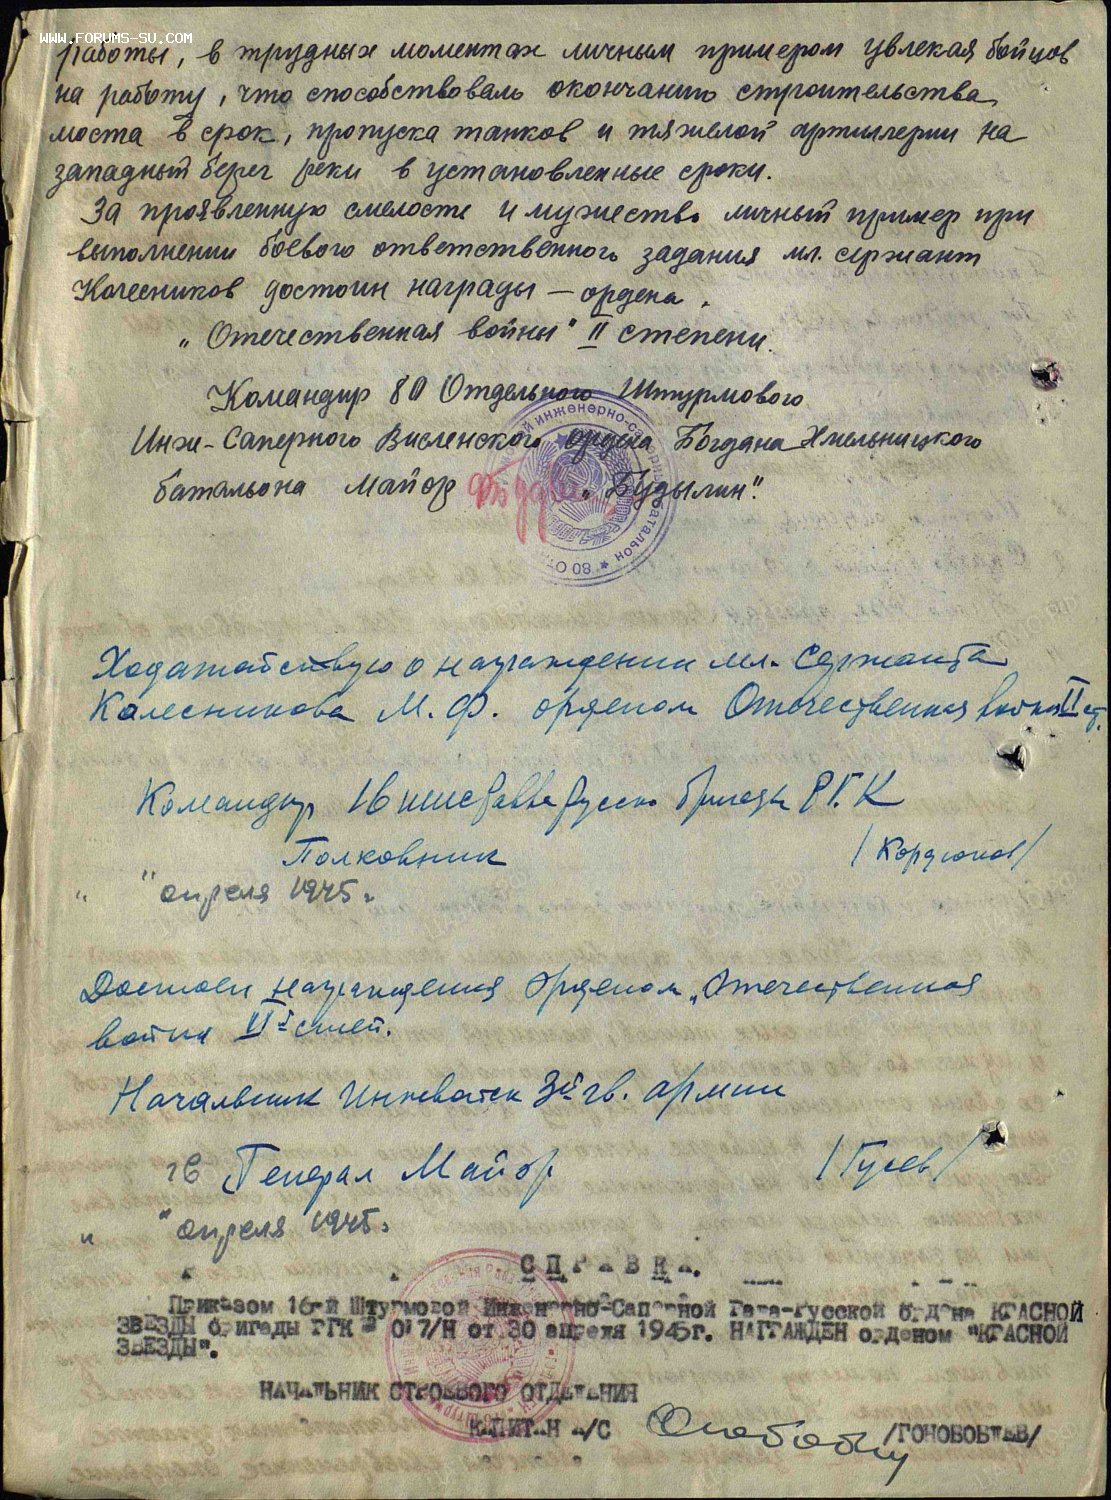 www.forums-su.com
работы, в трудных моментах личным примером увлекая бойцов
на работу, что способствовало окончанию строительства
моста в срок, пропуска танков и тяжелой артиллерии на
западный берег реки в установленные сроки.
За проявленную смелость и мужество личный пример при
выполнении боевого ответственного задания мл. сержант
Колесников достоин награды — ордена
„Отечественная войны" II степени.
Командир 80 Отдельного Штурмового
Инж-Саперного Висленского ордена Богдана Хмельницкого
батальона Майор „Будылин".
Ходатайствую о награждении мл. Сержанта
Колесникова М. Ф. орденом Отечественная война II ст.
Командир 16 бригады РГК
Полковник /Кордюков/
" " апреля 1945 г.
Достоен награждения Орденом „Отечественная
война II й степ.
Начальник Инжвойск 3й гв. армии
гв Генерал Майор /Гусев/
" " апреля 1945 г.
СПРАВКА.
Приказом 16-й Штурмовой Инженерно-Саперной Рава-Русской ордена КРАСНОЙ
ЗВЕЗДЫ бригады РГК № 017/Н от 30 апреля 1945г. НАГРАЖДЕН орденом "КРАСНОЙ
ЗВЕЗДЫ".
НАЧАЛЬНИК СТРОЕВОГО ОТДЕЛЕНИЯ
КАПИТАН А/С /ГОНОБОБЛЕВ/